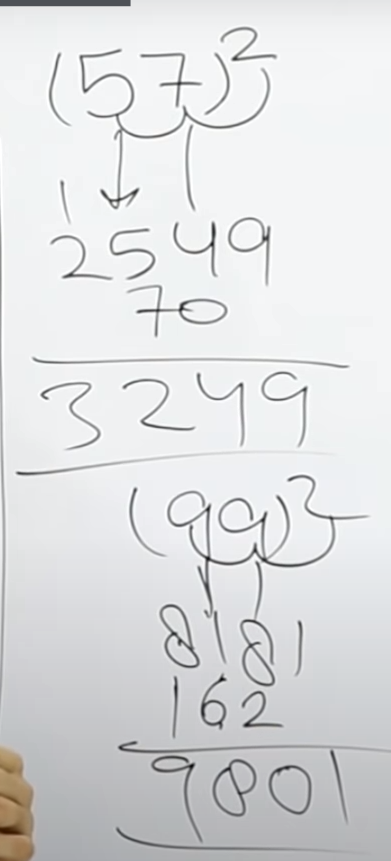 (57)²
1
2549
70
3249
(99)²
8181
162
9801